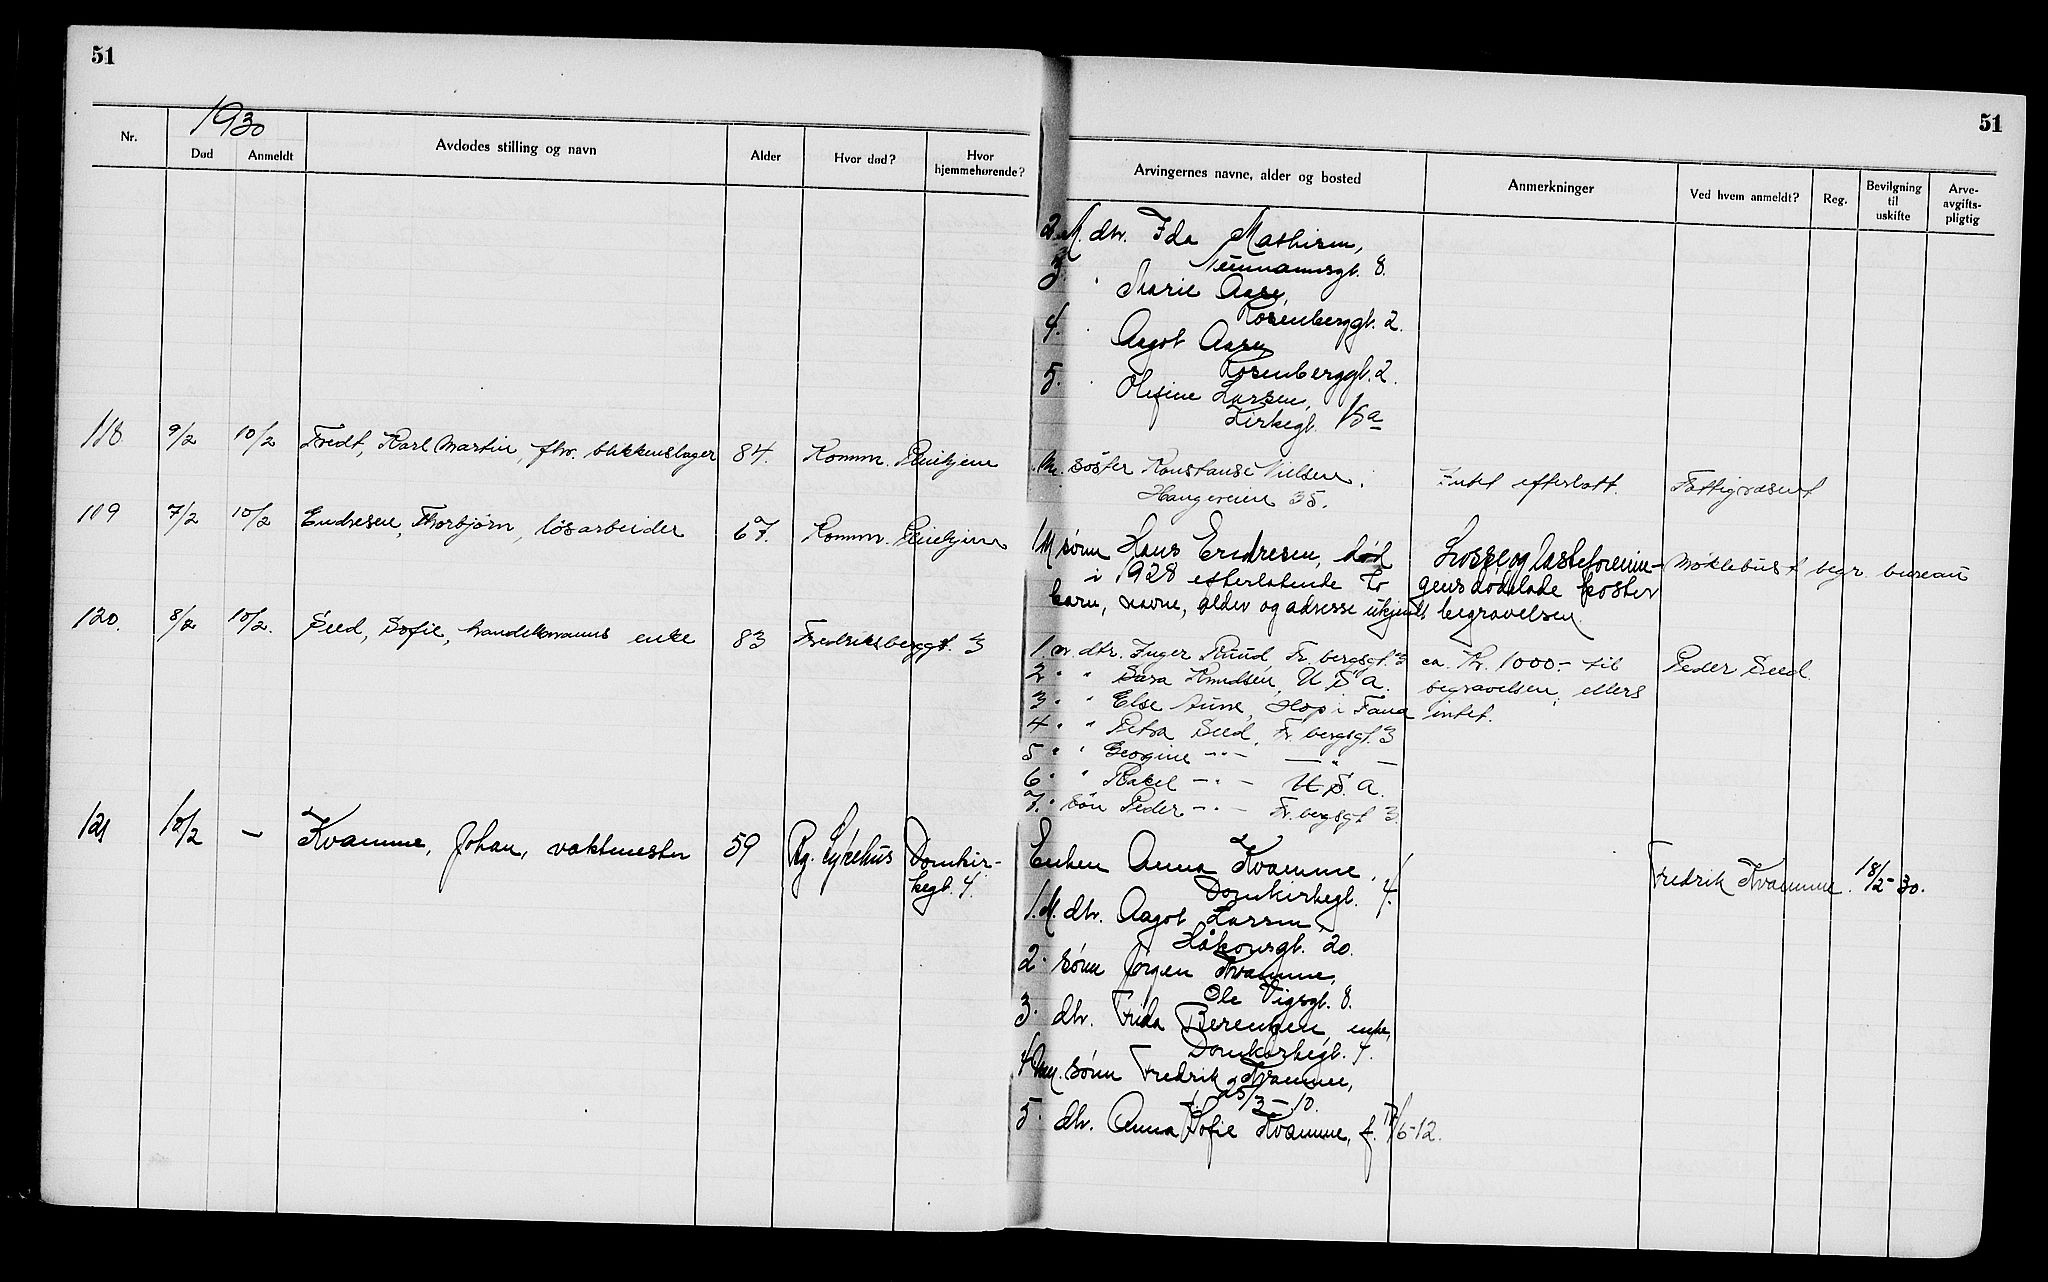 51
51
1930
Nr.
Død
Anmeldt
Avdødes stilling og navn
Alder
Hvor død?
Hvor
hjemmehørende?
Arvingernes navne, alder og bosted
Anmerkninger
Ved hvem anmeldt?
Reg.
Bevilgning
til
uskifte
Arve-
avgifts-
pligtig
2. M. dtr. Ida Mathisen,
Neumannsgt. 8.
3. " Marie Aase,
Rosenberggt. 2.
4. " Aagot Aase,
Rosenberggt. 2.
5. " Olefine Larsen,
Kirkegt. 15a
118 9/2 10/2 Fredt, Karl Martin, fhv. blikkenslager 84. Komm. Pleiehjem
M. søster Konstanse Nielsen, Intet efterlatt. Fattigvæsnet
Haugeveien 35.
119 7/2 10/2 Endresen, Thorbjørn, løsarbeider 67. Komm. Pleiehjem
1 M sønn Hans Endresen, død Losse og lasteforenin- Møklebust begr. bureau
i 1928 efterlatende to gens dødslade koster
barn, navne, alder og adresse ukjendt begravelsen.
120. 8/2 10/2. Seed, Sofie, handelsmanns enke 83 Fredriksberggt. 3
1. m. dtr. Inger Ruud, Fr. bergsgt. 3 ca. Kr. 1000.- til Peder Seed.
2 " " Sara Knudsen, U S A. begravelsen, ellers
3 " " Else Aune, Hop i Fana intet.
4 " " Petra Seed, Fr. bergsgt. 3
5 " " Georgine -"- — " —
6 " " Rakel -"- U. S. A.
7. " søn Peder -"- Fr. bergsgt 3.
121 10/2 — Kvamme, Johan, vaktmester 59 Rg. Sykehus Domkir-
kegt. 4.
Enken Anna Kvamme, Fredrik Kvamme. 18/2-30.
Domkirkegt. 4.
1. M. dtr. Aagot Larsen,
Håkonsgt. 20.
2. sønn Jørgen Kvamme,
Ole Vigsgt. 8.
3. dtr. Frida Berentzen, enke,
Domkirkegt. 4.
4. Um. sønn Fredrik Kvamme,
f. 25/3-10.
5. dtr. Anna Sofie Kvamme, f. 17/6-12.